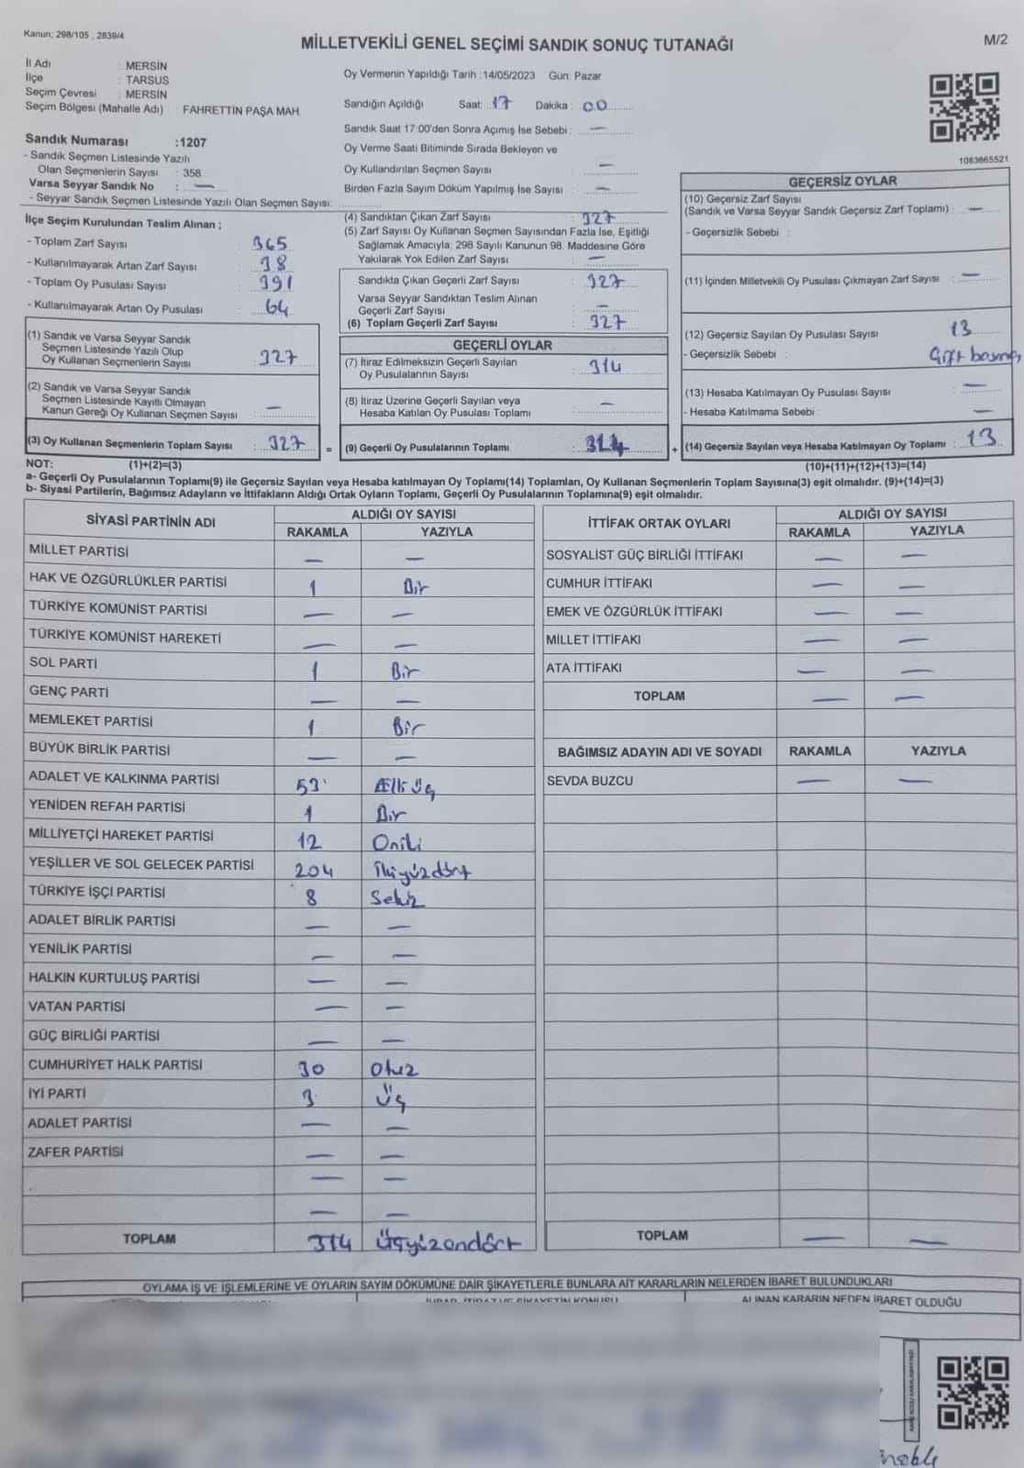 Kanun; 298/105 , 2839/4
MİLLETVEKİLİ GENEL SEÇİMİ SANDIK SONUÇ TUTANAĞI
M/2
İl Adı : MERSİN
İlçe : TARSUS
Seçim Çevresi : MERSİN
Seçim Bölgesi (Mahalle Adı) : FAHRETTİN PAŞA MAH
Oy Vermenin Yapıldığı Tarih :14/05/2023 Gün: Pazar
Sandığın Açıldığı Saat: 17 Dakika : 00
Sandık Saat 17:00'den Sonra Açımış İse Sebebi : —
Oy Verme Saati Bitiminde Sırada Bekleyen ve
Oy Kullandırılan Seçmen Sayısı : —
Birden Fazla Sayım Döküm Yapılmış İse Sayısı : —
Sandık Numarası :1207
- Sandık Seçmen Listesinde Yazılı
Olan Seçmenlerin Sayısı : 358
Varsa Seyyar Sandık No : —
- Seyyar Sandık Seçmen Listesinde Yazılı Olan Seçmen Sayısı:
1083665521
İlçe Seçim Kurulundan Teslim Alınan ;
- Toplam Zarf Sayısı : 365
- Kullanılmayarak Artan Zarf Sayısı : 38
- Toplam Oy Pusulası Sayısı : 391
- Kullanılmayarak Artan Oy Pusulası : 64
(1) Sandık ve Varsa Seyyar Sandık
Seçmen Listesinde Yazılı Olup
Oy Kullanan Seçmenlerin Sayısı : 327
(2) Sandık ve Varsa Seyyar Sandık
Seçmen Listesinde Kayıtlı Olmayan
Kanun Gereği Oy Kullanan Seçmen Sayısı : —
(3) Oy Kullanan Seçmenlerin Toplam Sayısı : 327 =
(4) Sandıktan Çıkan Zarf Sayısı : 327
(5) Zarf Sayısı Oy Kullanan Seçmen Sayısından Fazla İse, Eşitliği
Sağlamak Amacıyla; 298 Sayılı Kanunun 98. Maddesine Göre
Yakılarak Yok Edilen Zarf Sayısı : —
Sandıkta Çıkan Geçerli Zarf Sayısı : 327
Varsa Seyyar Sandıktan Teslim Alınan
Geçerli Zarf Sayısı : —
(6) Toplam Geçerli Zarf Sayısı : 327
GEÇERLİ OYLAR
(7) İtiraz Edilmeksizin Geçerli Sayılan
Oy Pusulalarının Sayısı : 314
(8) İtiraz Üzerine Geçerli Sayılan veya
Hesaba Katılan Oy Pusulası Toplamı : —
(9) Geçerli Oy Pusulalarının Toplamı : 314 +
GEÇERSİZ OYLAR
(10) Geçersiz Zarf Sayısı
(Sandık ve Varsa Seyyar Sandık Geçersiz Zarf Toplamı) : —
- Geçersizlik Sebebi :
(11) İçinden Milletvekili Oy Pusulası Çıkmayan Zarf Sayısı : —
(12) Geçersiz Sayılan Oy Pusulası Sayısı : 13
- Geçersizlik Sebebi : Çift basmış
(13) Hesaba Katılmayan Oy Pusulası Sayısı : —
- Hesaba Katılmama Sebebi : —
(14) Geçersiz Sayılan veya Hesaba Katılmayan Oy Toplamı : 13
NOT: (1)+(2)=(3) (10)+(11)+(12)+(13)=(14)
a- Geçerli Oy Pusulalarının Toplamı(9) ile Geçersiz Sayılan veya Hesaba katılmayan Oy Toplamı(14) Toplamları, Oy Kullanan Seçmenlerin Toplam Sayısına(3) eşit olmalıdır. (9)+(14)=(3)
b- Siyasi Partilerin, Bağımsız Adayların ve İttifakların Aldığı Ortak Oyların Toplamı, Geçerli Oy Pusulalarının Toplamına(9) eşit olmalıdır.
SİYASİ PARTİNİN ADI ALDIĞI OY SAYISI
RAKAMLA YAZIYLA
MİLLET PARTİSİ — —
HAK VE ÖZGÜRLÜKLER PARTİSİ 1 Bir
TÜRKİYE KOMÜNİST PARTİSİ — —
TÜRKİYE KOMÜNİST HAREKETİ — —
SOL PARTİ 1 Bir
GENÇ PARTİ — —
MEMLEKET PARTİSİ 1 Bir
BÜYÜK BİRLİK PARTİSİ — —
ADALET VE KALKINMA PARTİSİ 53 Elli Üç
YENİDEN REFAH PARTİSİ 1 Bir
MİLLİYETÇİ HAREKET PARTİSİ 12 Oniki
YEŞİLLER VE SOL GELECEK PARTİSİ 204 İkiyüzdört
TÜRKİYE İŞÇİ PARTİSİ 8 Sekiz
ADALET BİRLİK PARTİSİ — —
YENİLİK PARTİSİ — —
HALKIN KURTULUŞ PARTİSİ — —
VATAN PARTİSİ — —
GÜÇ BİRLİĞİ PARTİSİ — —
CUMHURİYET HALK PARTİSİ 30 Otuz
İYİ PARTİ 3 Üç
ADALET PARTİSİ — —
ZAFER PARTİSİ — —
— —
— —
TOPLAM 314 Üçyüzondört
İTTİFAK ORTAK OYLARI ALDIĞI OY SAYISI
RAKAMLA YAZIYLA
SOSYALİST GÜÇ BİRLİĞİ İTTİFAKI — —
CUMHUR İTTİFAKI — —
EMEK VE ÖZGÜRLÜK İTTİFAKI — —
MİLLET İTTİFAKI — —
ATA İTTİFAKI — —
TOPLAM — —
BAĞIMSIZ ADAYIN ADI VE SOYADI RAKAMLA YAZIYLA
SEVDA BUZCU — —
TOPLAM — —
OYLAMA İŞ VE İŞLEMLERİNE VE OYLARIN SAYIM DÖKÜMÜNE DAİR ŞİKAYETLERLE BUNLARA AİT KARARLARIN NELERDEN İBARET BULUNDUKLARI
ALINAN KARARIN NEDEN İBARET OLDUĞU